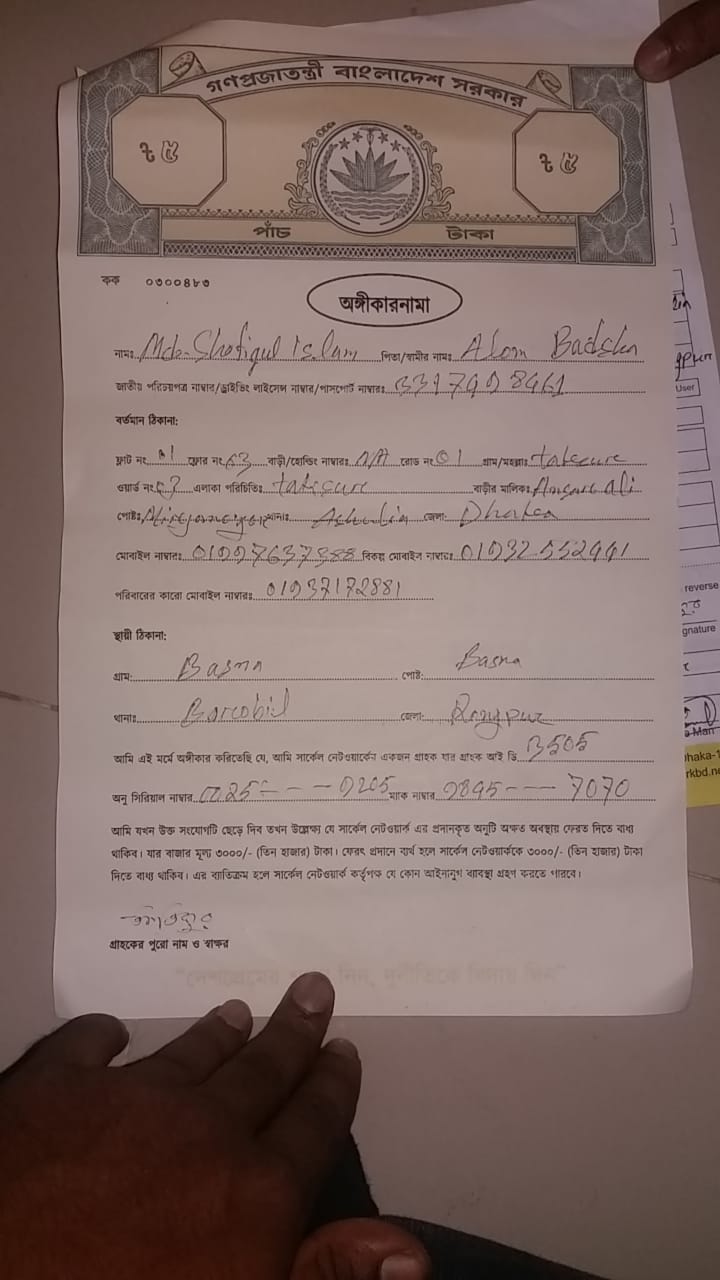 গণপ্রজাতন্ত্রী বাংলাদেশ সরকার
৳ ৫ ৳ ৫
পাঁচ টাকা
কক ০৩০০৪৮৩
অঙ্গীকারনামা
নামঃ Md. Shofiqul Islam পিতা/স্বামীর নামঃ Alom Badsha
জাতীয় পরিচয়পত্র নাম্বার/ড্রাইভিং লাইসেন্স নাম্বার/পাসপোর্ট নাম্বারঃ
বর্তমান ঠিকানা:
ফ্লাট নং ফ্লোর নং বাড়ী/হোল্ডিং নাম্বারঃ N/A রোড নং 01 গ্রাম/মহল্লাঃ
ওয়ার্ড নং এলাকা পরিচিতিঃ বাড়ীর মালিকঃ Ansar ali
পোষ্টঃ থানাঃ Ashulia জেলা: Dhaka
মোবাইল নাম্বারঃ বিকল্প মোবাইল নাম্বারঃ
পরিবারের কারো মোবাইল নাম্বারঃ 01937172881
স্থায়ী ঠিকানা:
গ্রাম: Basna পোষ্ট: Basna
থানাঃ জেলা: Rangpur
আমি এই মর্মে অঙ্গীকার করিতেছি যে, আমি সার্কেল নেটওয়ার্কের একজন গ্রাহক যার গ্রাহক আই ডি B505
অনু সিরিয়াল নাম্বার ম্যাক নাম্বার 9845 --- 7070
আমি যখন উক্ত সংযোগটি ছেড়ে দিব তখন উল্লেখ্য যে সার্কেল নেটওয়ার্ক এর প্রদানকৃত অনুটি অক্ষত অবস্থায় ফেরত দিতে বাধ্য
থাকিব। যার বাজার মূল্য ৩০০০/- (তিন হাজার) টাকা। ফেরৎ প্রদানে ব্যর্থ হলে সার্কেল নেটওয়ার্ককে ৩০০০/- (তিন হাজার) টাকা
দিতে বাধ্য থাকিব। এর ব্যতিক্রম হলে সার্কেল নেটওয়ার্ক কর্তৃপক্ষ যে কোন আইনানুগ ব্যবস্থা গ্রহণ করতে পারবে।
গ্রাহকের পুরো নাম ও স্বাক্ষর
User
reverse
gnature
haka-1
rkbd.ne